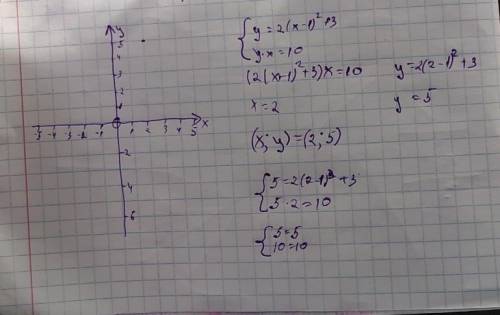 y
5
4
3
2
1
-5 -4 -3 -2 -1 0 1 2 3 4 5 x
2
4
6
{ y = 2(x-1)² + 3
y·x = 10
(2(x-1)² + 3)x = 10 y = 2(2-1)² + 3
x = 2 y = 5
(x; y) = (2; 5)
{ 5 = 2(2-1)² + 3
5·2 = 10
{ 5 = 5
10 = 10